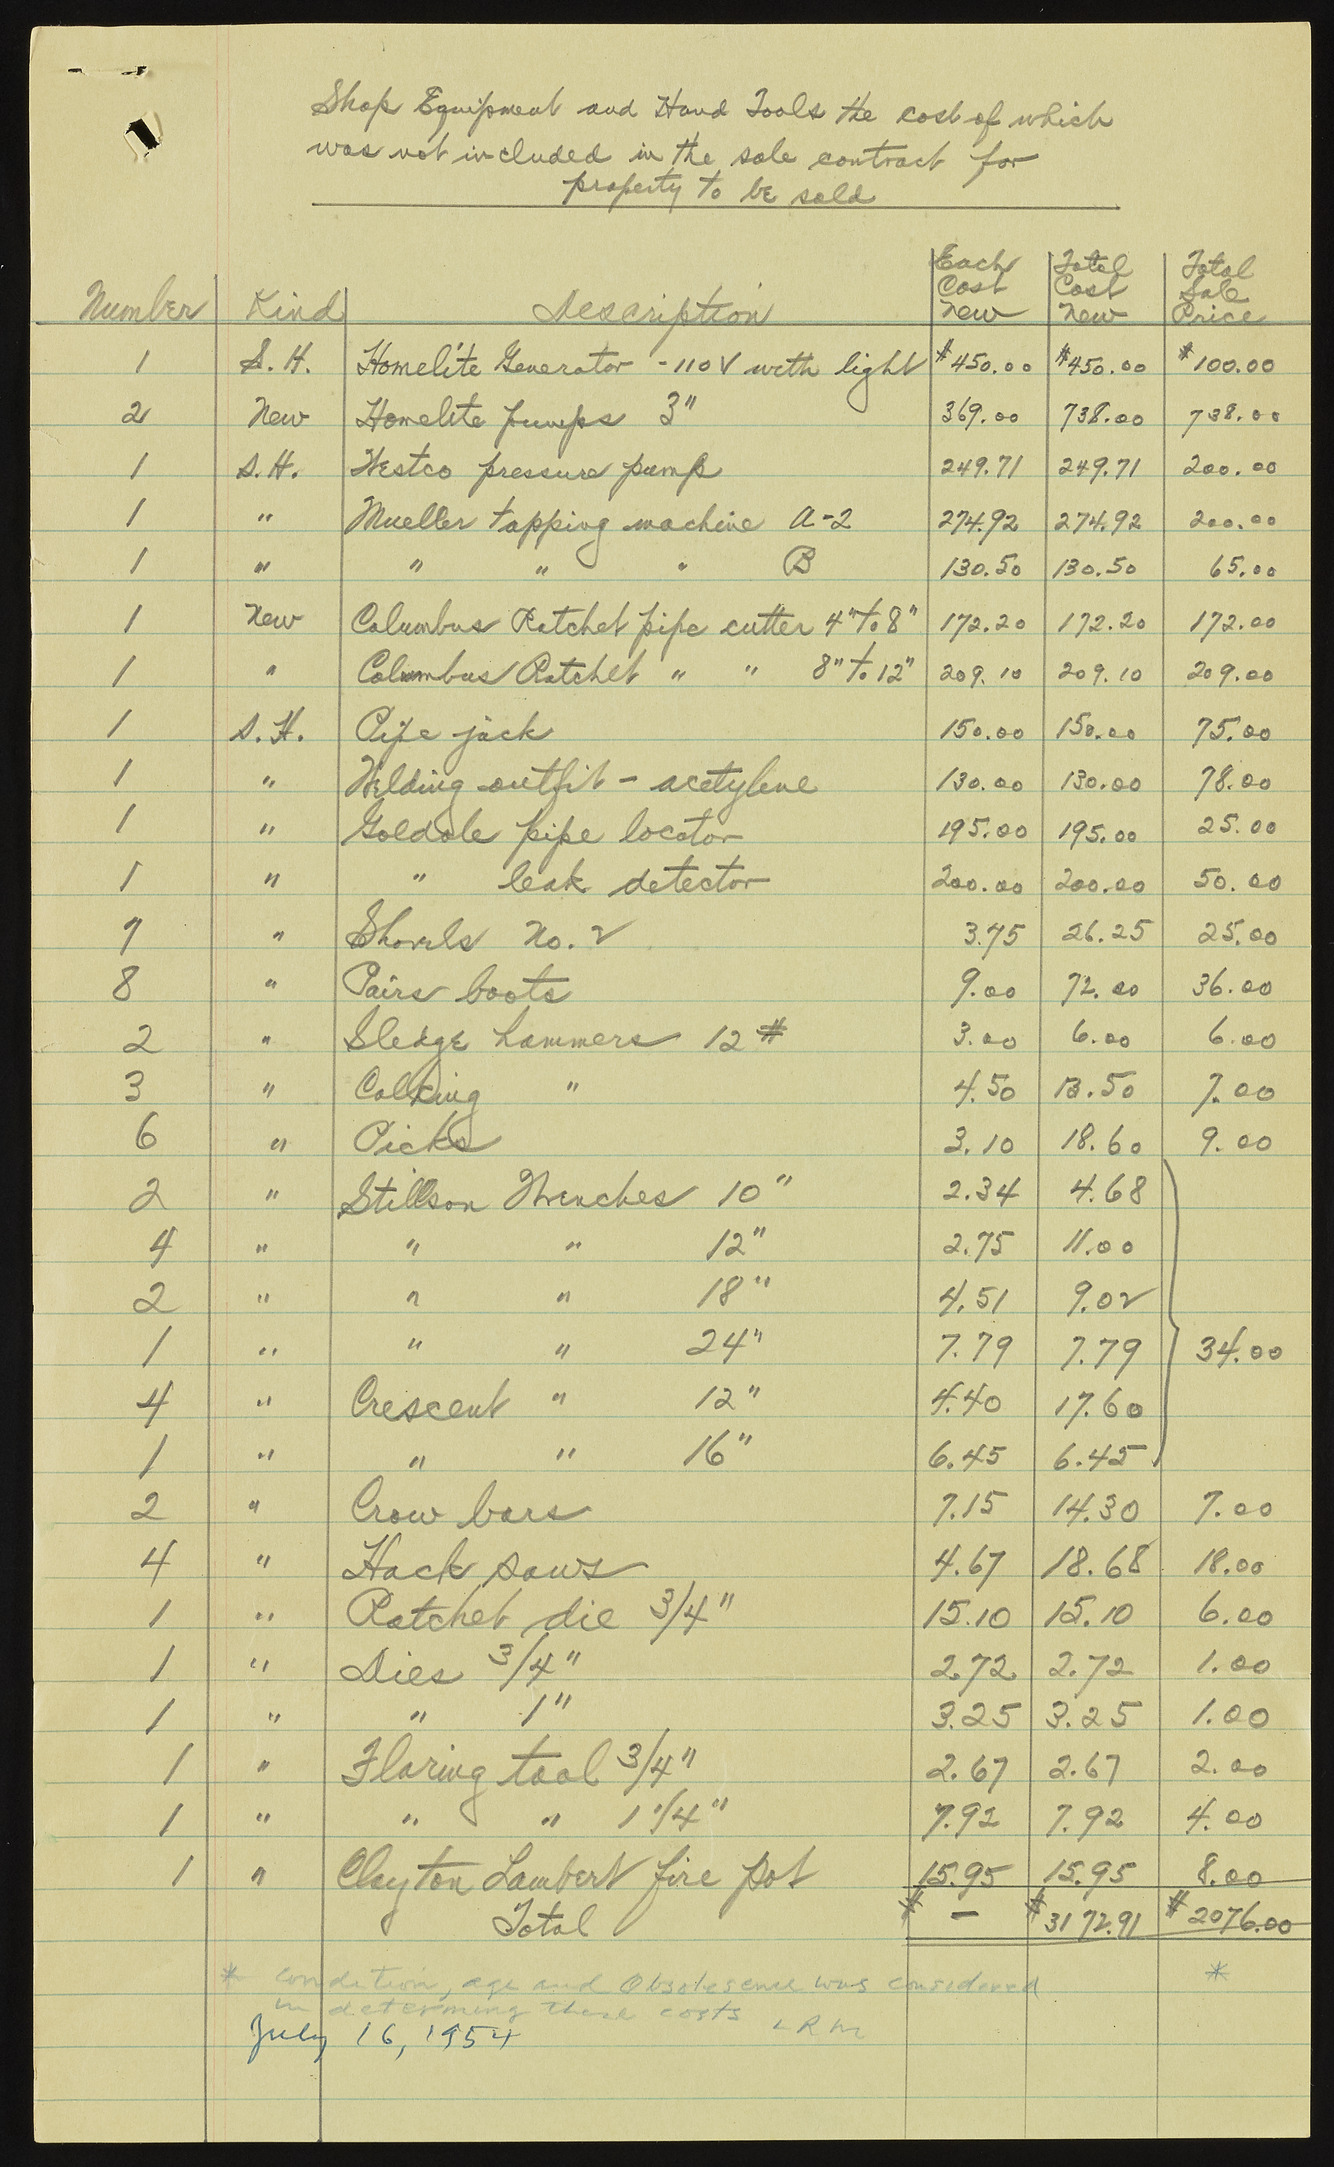 Shop Equipment and Hand Tools the cost of which
was not included in the sale contract for
property to be sold
Number Kind Description Each Cost New Total Cost New Total Sale Price
1 S.H. Homelite Generator - 110 V with light $450.00 $450.00 $100.00
2 New Homelite pumps 3" 369.00 738.00 738.00
1 S.H. Westco pressure pump 249.71 249.71 200.00
1 " Mueller tapping machine A-2 274.92 274.92 200.00
1 " " " " B 130.50 130.50 65.00
1 New Columbus Ratchet pipe cutter 4" to 8" 172.20 172.20 172.00
1 " Columbus Ratchet " " 8" to 12" 209.10 209.10 209.00
1 S.H. Pipe jack 150.00 150.00 75.00
1 " Welding outfit - acetylene 130.00 130.00 78.00
1 " Goldale pipe locator 195.00 195.00 25.00
1 " " leak detector 200.00 200.00 50.00
7 " Shovels No. 2 3.75 26.25 25.00
8 " Pairs boots 9.00 72.00 36.00
2 " Sledge hammers 12# 3.00 6.00 6.00
3 " Calking " 4.50 13.50 7.00
6 " Picks 3.10 18.60 9.00
2 " Stillson Wrenches 10" 2.34 4.68
4 " " " 12" 2.75 11.00
2 " " " 18" 4.51 9.02
1 " " " 24" 7.79 7.79 34.00
4 " Crescent " 12" 4.40 17.60
1 " " " 16" 6.45 6.45
2 " Crow bars 7.15 14.30 7.00
4 " Hack saws 4.67 18.68 18.00
1 " Ratchet die 3/4" 15.10 15.10 6.00
1 " Dies 3/4" 2.72 2.72 1.00
1 " " 1" 3.25 3.25 1.00
1 " Flaring tool 3/4" 2.67 2.67 2.00
1 " " " 1 1/4" 7.92 7.92 4.00
1 " Clayton Lambert fire pot 15.95 15.95 8.00
Total $ — $3172.91 $2076.00
* condition, age and Obsolesence was considered *
in determining these costs LRM
July 16, 1954